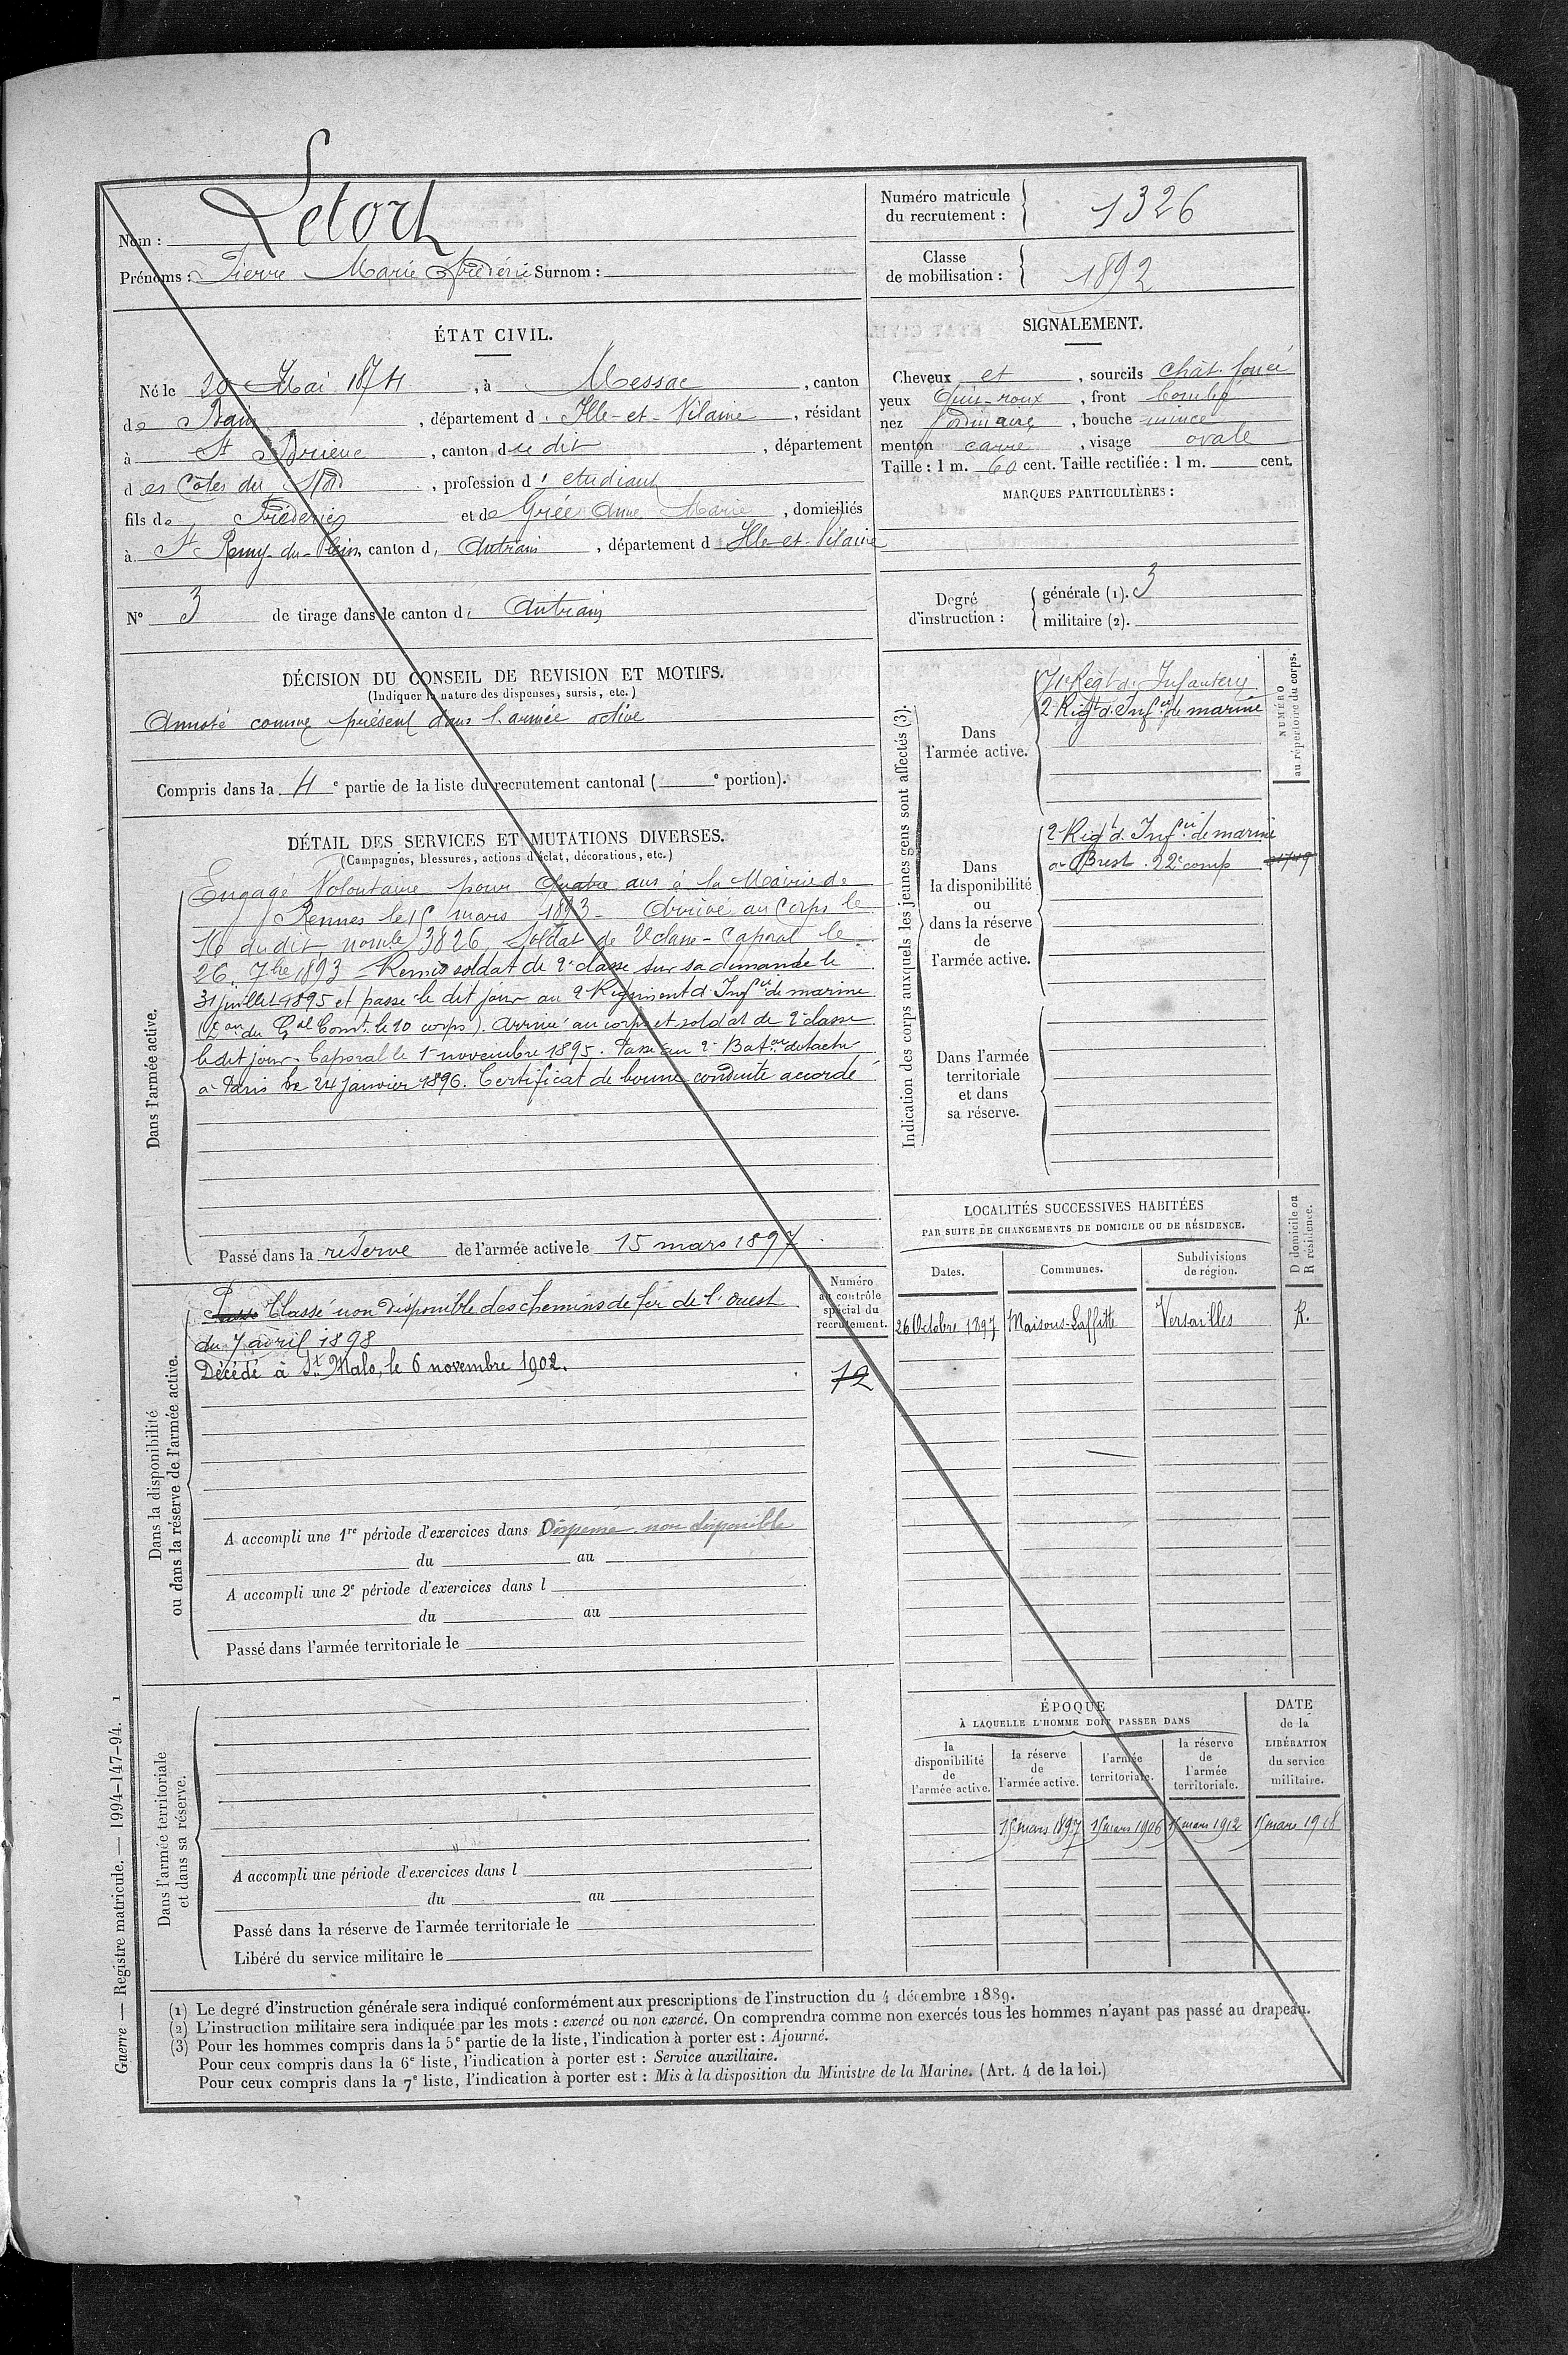 Nom : Letort
Prénoms : Pierre Marie Frédéric Surnom :
Numéro matricule du recrutement : 1326
Classe de mobilisation : 1892
ÉTAT CIVIL.
Né le 20 Mai 1874, à Messac, canton
de Bain, département d'Ille-et-Vilaine, résidant
à St Brieuc, canton dudit, département
des Côtes du Nord, profession d'étudiant
fils de Frédéric et de Grée Anne Marie, domiciliés
à St Remy-du-Plein, canton d'Antrain, département d'Ille-et-Vilaine
N° 3 de tirage dans le canton d'Antrain
SIGNALEMENT.
Cheveux et, sourcils chât. foncé
yeux gris-roux, front bombé
nez ordinaire, bouche mince
menton carré, visage ovale
Taille : 1 m. 60 cent. Taille rectifiée : 1 m. cent.
MARQUES PARTICULIÈRES :
Degré d'instruction : générale (1). 3
militaire (2).
DÉCISION DU CONSEIL DE REVISION ET MOTIFS.
(Indiquer la nature des dispenses, sursis, etc.)
Annoté comme présent dans l'armée active
Compris dans la 4e partie de la liste du recrutement cantonal ( e portion).
DÉTAIL DES SERVICES ET MUTATIONS DIVERSES.
(Campagnes, blessures, actions d'éclat, décorations, etc.)
Dans l'armée active.
Engagé Volontaire pour quatre ans à la Mairie de
Rennes le 15 mars 1893 - Arrivé au Corps le
16 du dit, nomle 3826, Soldat de 2e classe - Caporal le
26 7bre 1893 - Remis soldat de 2e classe sur sa demande le
31 juillet 1895 et passé le dit jour au 2e Régiment d'Infrie de marine
(on du Gal Comt le 10 corps). Arrivé au corps et soldat de 2e classe
le dit jour. Caporal le 1er novembre 1895. Passé au 2e Baton détaché
à Paris le 24 janvier 1896. Certificat de bonne conduite accordé
Passé dans la réserve de l'armée active le 15 mars 1897
Indication des corps auxquels les jeunes gens sont affectés (3).
NUMÉRO au répertoire du corps.
Dans l'armée active.
71e Régt d'Infanterie
2e Régt d'Infrie de marine
Dans la disponibilité ou dans la réserve de l'armée active.
2e Régt d'Infrie de marine
à Brest. 22e comp
Dans l'armée territoriale et dans sa réserve.
LOCALITÉS SUCCESSIVES HABITÉES
PAR SUITE DE CHANGEMENTS DE DOMICILE OU DE RÉSIDENCE.
Dates. Communes. Subdivisions de région. D domicile ou R résidence.
26 Octobre 1897 Maisons-Laffitte Versailles R.
Dans la disponibilité ou dans la réserve de l'armée active.
Numéro au contrôle spécial du recrutement.
72
Passé Classé non disponible des chemins de fer de l'Ouest
du 7 avril 1898
Décédé à St Malo, le 6 novembre 1902.
A accompli une 1re période d'exercices dans Dispensé non disponible
du au
A accompli une 2e période d'exercices dans l
du au
Passé dans l'armée territoriale le
Dans l'armée territoriale et dans sa réserve.
A accompli une période d'exercices dans l
du au
Passé dans la réserve de l'armée territoriale le
Libéré du service militaire le
ÉPOQUE
À LAQUELLE L'HOMME DOIT PASSER DANS
la disponibilité de l'armée active. la réserve de l'armée active. l'armée territoriale. la réserve de l'armée territoriale.
DATE de la LIBÉRATION du service militaire.
15 mars 1897 15 mars 1906 15 mars 1912 15 mars 1918
Guerre. — Registre matricule. — 1994-147-94. 1
(1) Le degré d'instruction générale sera indiqué conformément aux prescriptions de l'instruction du 4 décembre 1889.
(2) L'instruction militaire sera indiquée par les mots : exercé ou non exercé. On comprendra comme non exercés tous les hommes n'ayant pas passé au drapeau.
(3) Pour les hommes compris dans la 5e partie de la liste, l'indication à porter est : Ajourné.
Pour ceux compris dans la 6e liste, l'indication à porter est : Service auxiliaire.
Pour ceux compris dans la 7e liste, l'indication à porter est : Mis à la disposition du Ministre de la Marine. (Art. 4 de la loi.)